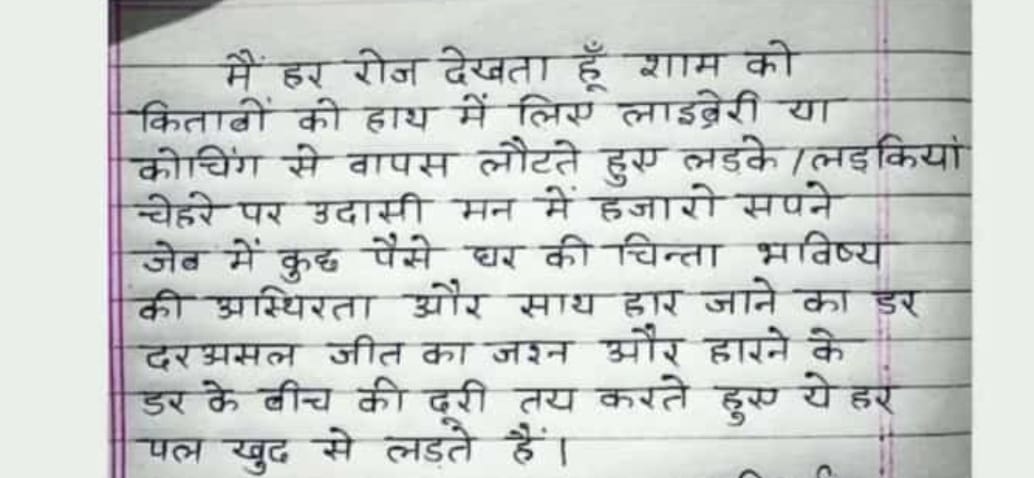 मैं हर रोज देखता हूँ शाम को
किताबों को हाथ में लिए लाइब्रेरी या
कोचिंग से वापस लौटते हुए लड़के/लड़कियां
चेहरे पर उदासी मन में हजारो सपने
जेब में कुछ पैसे घर की चिन्ता भविष्य
की अस्थिरता और साथ हार जाने का डर
दरअसल जीत का जश्न और हारने के
डर के बीच की दूरी तय करते हुए ये हर
पल खुद से लड़ते हैं।